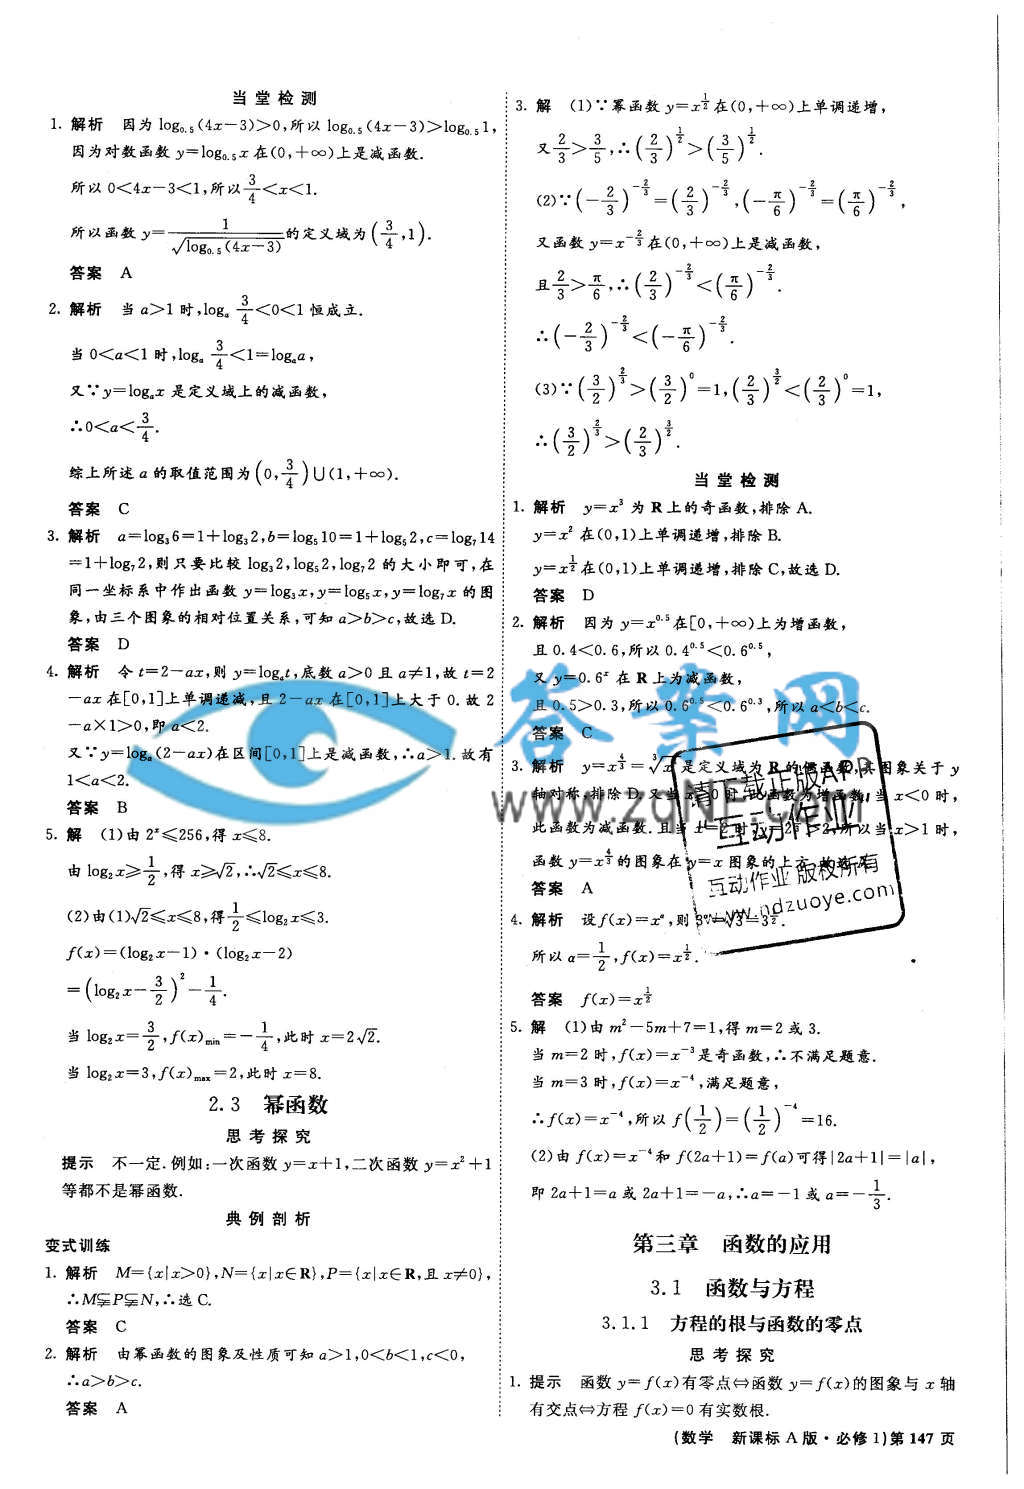 当堂检测
1. 解析 因为 log₀.₅(4x-3)>0,所以 log₀.₅(4x-3)>log₀.₅1,
因为对数函数 y=log₀.₅x 在(0,+∞)上是减函数.
所以 0<4x-3<1,所以 3/4<x<1.
所以函数 y=1/√(log₀.₅(4x-3)) 的定义域为(3/4,1).
答案 A
2. 解析 当 a>1 时,logₐ 3/4<0<1 恒成立.
当 0<a<1 时,logₐ 3/4<1=logₐa,
又∵y=logₐx 是定义域上的减函数,
∴0<a<3/4.
综上所述 a 的取值范围为(0,3/4)∪(1,+∞).
答案 C
3. 解析 a=log₃6=1+log₃2,b=log₅10=1+log₅2,c=log₇14
=1+log₇2,则只要比较 log₃2,log₅2,log₇2 的大小即可,在
同一坐标系中作出函数 y=log₃x,y=log₅x,y=log₇x 的图
象,由三个图象的相对位置关系,可知 a>b>c,故选 D.
答案 D
4. 解析 令 t=2-ax,则 y=logₐt,底数 a>0 且 a≠1,故 t=2
-ax 在[0,1]上单调递减,且 2-ax 在[0,1]上大于 0.故 2
-a×1>0,即 a<2.
又∵y=logₐ(2-ax)在区间[0,1]上是减函数,∴a>1.故有
1<a<2.
答案 B
5. 解 (1)由 2ˣ≤256,得 x≤8.
由 log₂x≥1/2,得 x≥√2,∴√2≤x≤8.
(2)由(1)√2≤x≤8,得 1/2≤log₂x≤3.
f(x)=(log₂x-1)·(log₂x-2)
=(log₂x-3/2)²-1/4.
当 log₂x=3/2,f(x)min=-1/4,此时 x=2√2.
当 log₂x=3,f(x)max=2,此时 x=8.
2.3 幂函数
思考探究
提示 不一定.例如:一次函数 y=x+1,二次函数 y=x²+1
等都不是幂函数.
典例剖析
变式训练
1. 解析 M={x|x>0},N={x|x∈R},P={x|x∈R,且 x≠0},
∴M⫋P⫋N,∴选 C.
答案 C
2. 解析 由幂函数的图象及性质可知 a>1,0<b<1,c<0,
∴a>b>c.
答案 A
3. 解 (1)∵幂函数 y=x^(1/2) 在(0,+∞)上单调递增,
又 2/3>3/5,∴(2/3)^(1/2)>(3/5)^(1/2).
(2)∵(-2/3)^(-2/3)=(2/3)^(-2/3),(-π/6)^(-2/3)=(π/6)^(-2/3),
又函数 y=x^(-2/3) 在(0,+∞)上是减函数,
且 2/3>π/6,∴(2/3)^(-2/3)<(π/6)^(-2/3).
∴(-2/3)^(-2/3)<(-π/6)^(-2/3).
(3)∵(3/2)^(2/3)>(3/2)⁰=1,(2/3)^(3/2)<(2/3)⁰=1,
∴(3/2)^(2/3)>(2/3)^(3/2).
当堂检测
1. 解析 y=x³ 为 R 上的奇函数,排除 A.
y=x² 在(0,1)上单调递增,排除 B.
y=x^(1/2) 在(0,1)上单调递增,排除 C,故选 D.
答案 D
2. 解析 因为 y=x^0.5 在[0,+∞)上为增函数,
且 0.4<0.6,所以 0.4^0.5<0.6^0.5,
又 y=0.6ˣ 在 R 上为减函数,
且 0.5>0.3,所以 0.6^0.5<0.6^0.3,所以 a<b<c.
答案 C
3. 解析 y=x^(4/3)=³√x 是定义域为 R 的偶函数,其图象关于 y
轴对称,排除 D.又当 x>0 时,此函数为增函数,当 x<0 时,
此函数为减函数.且当 时, 所以当 x>1 时,
函数 y=x^(4/3) 的图象在 y=x 图象的上方,故选 A.
答案 A
4. 解析 设 f(x)=x^α,则 3^α=√3=3^(1/2).
所以 α=1/2,f(x)=x^(1/2).
答案 f(x)=x^(1/2)
5. 解 (1)由 m²-5m+7=1,得 m=2 或 3.
当 m=2 时,f(x)=x⁻³ 是奇函数,∴不满足题意.
当 m=3 时,f(x)=x⁻⁴,满足题意,
∴f(x)=x⁻⁴,所以 f(1/2)=(1/2)⁻⁴=16.
(2)由 f(x)=x⁻⁴ 和 f(2a+1)=f(a)可得|2a+1|=|a|,
即 2a+1=a 或 2a+1=-a,∴a=-1 或 a=-1/3.
第三章 函数的应用
3.1 函数与方程
3.1.1 方程的根与函数的零点
思考探究
1. 提示 函数 y=f(x)有零点⇔函数 y=f(x)的图象与 x 轴
有交点⇔方程 f(x)=0 有实数根.
(数学 新课标 A 版·必修 1)第 147 页
答案网
www.zqNE.com
请下载正版APP
互动作业
互动作业 版权所有
www.hdzuoye.com